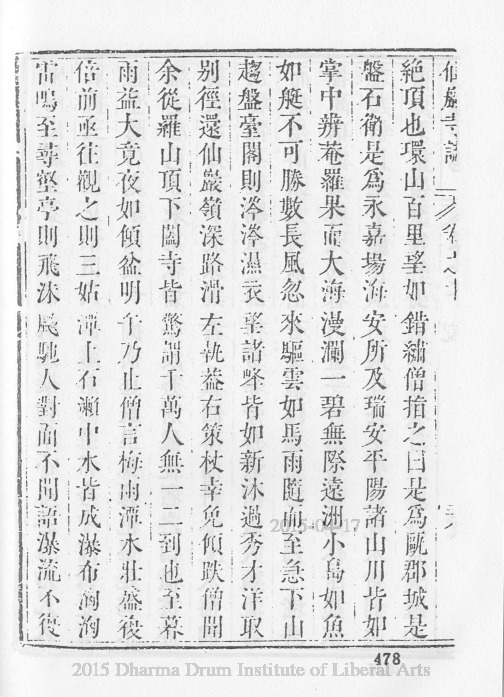 仙巖寺志 卷之十
絶頂也環山百里望如錯繡僧指之曰是爲甌郡城是
盤石衛是爲永嘉塲海安所及瑞安平陽諸山川皆如
掌中辨菴羅果而大海漫瀾一碧無際遠洲小島如魚
如艇不可勝數長風忽來驅雲如馬雨隨而至急下山
趨盤臺閣則涔涔濕衣望諸峰皆如新沐過秀才洋取
别徑還仙巖嶺深路滑左執葢右策杖幸免傾跌僧聞
余從羅山頂下闔寺皆驚謂千萬人無一二到也至暮
雨益大竟夜如傾盆明午乃止僧言梅雨潭水壯盛復
倍前亟往觀之則三姑潭上石瀨中水皆成瀑布洶洶
雷鳴至尋壑亭則飛沫颷馳人對面不聞語瀑流不復
478
2015-04-17
2015 Dharma Drum Institute of Liberal Arts